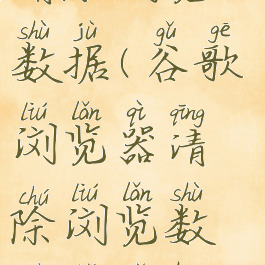 shù jù gǔ gē
数据(谷歌
liú lǎn qì qīng
浏览器清
chú liú lǎn shù
除浏览数